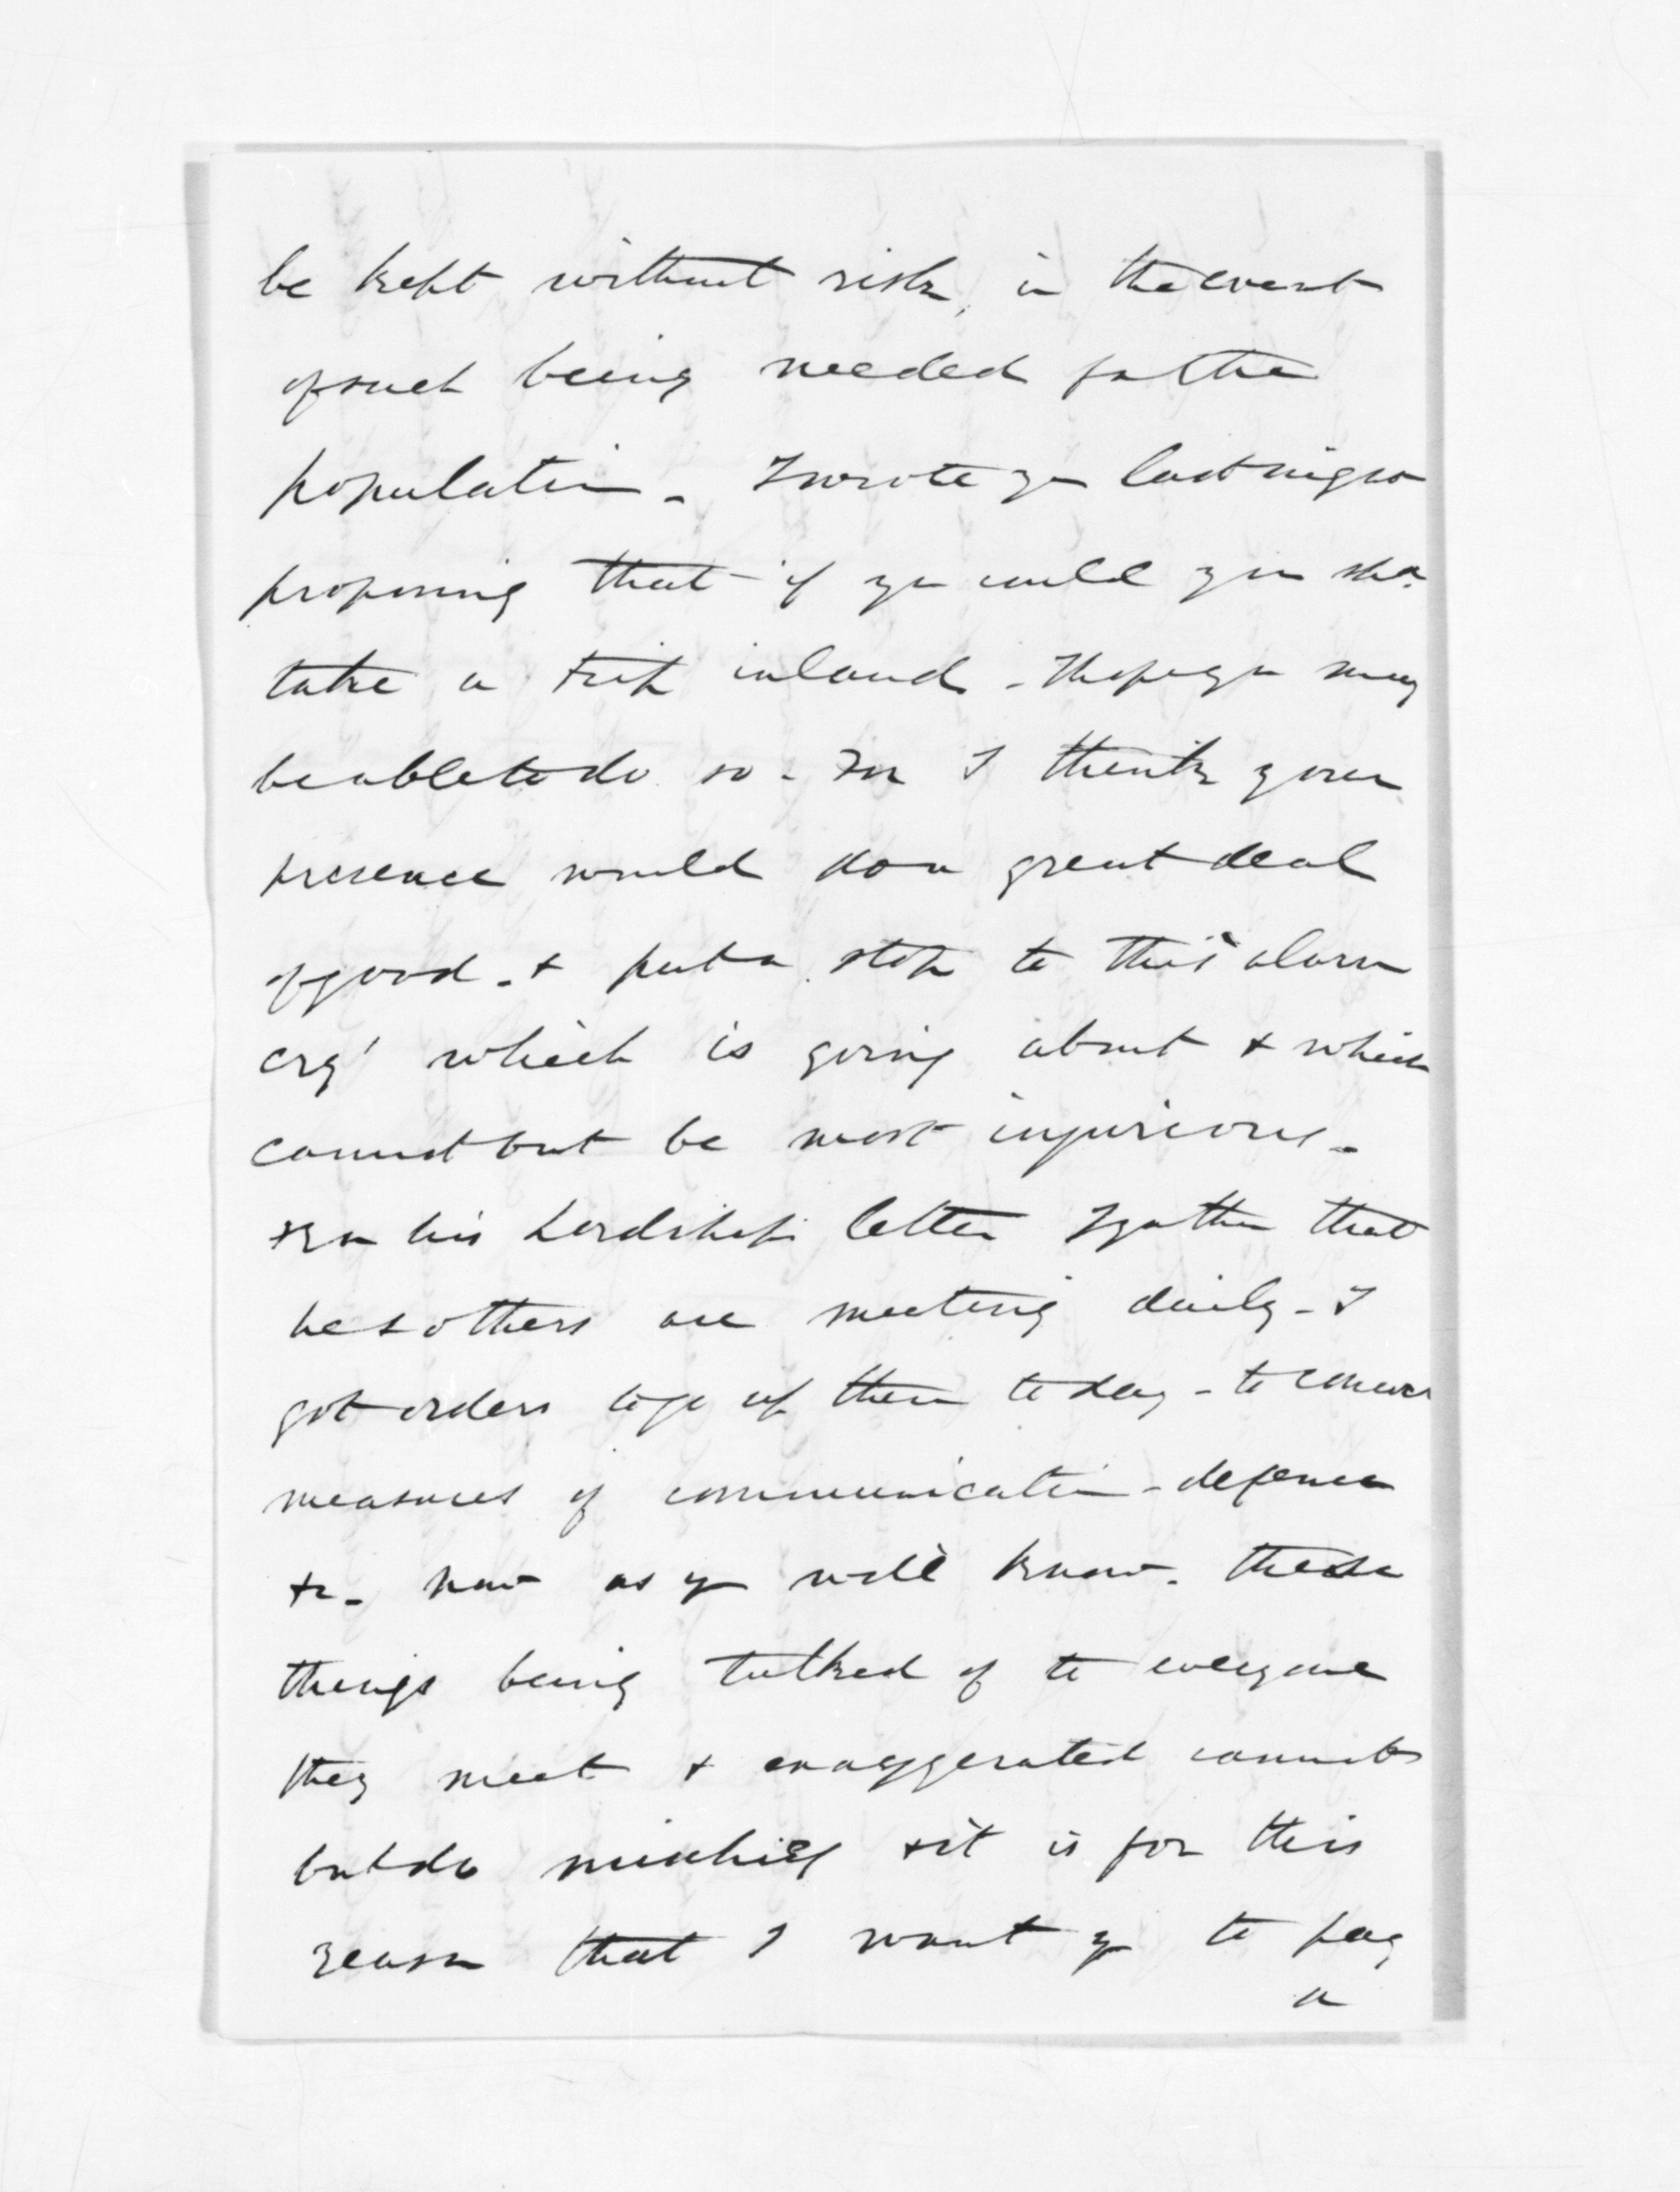 be kept without risk, in the event
of such being needed for the
population - I wrote you last night
proposing that if you could you shd.
take a trip inland - I hope you may
be able to do so - For I think your
presence would do a great deal
of good - & put a stop to this 'alarm
cry' which is going about & which
cannot but be most injurious -
From his Lordships letter I gather that
he & others are meeting daily - I
got orders to go up there today - to concer
measures of communication - defence
&c - Now as you well know - these
things being talked of to everyone
they meet & exaggerated cannot
but do mischief & it is for this
reason that I want you to pay
a